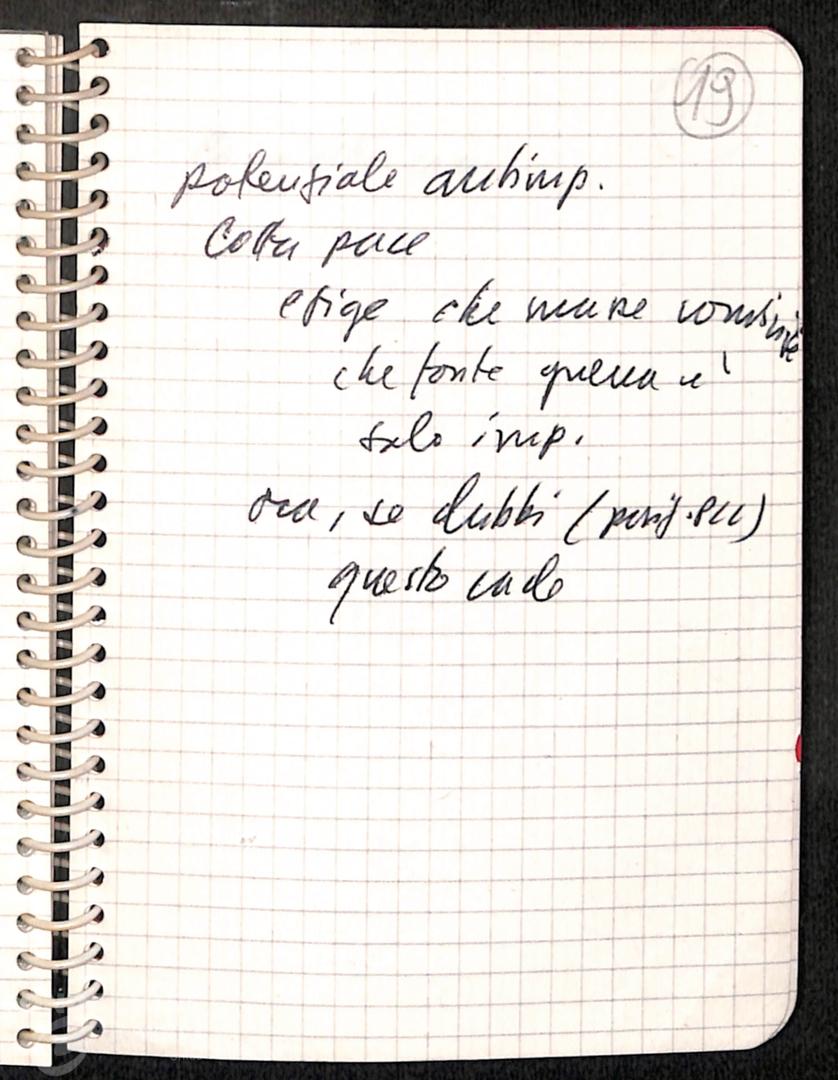 19
potenziale antimp.
Lotta pace
esige che masse convinte
che fonte guerra è
solo imp.
ora, se dubbi (posiz. PCC)
questo cade